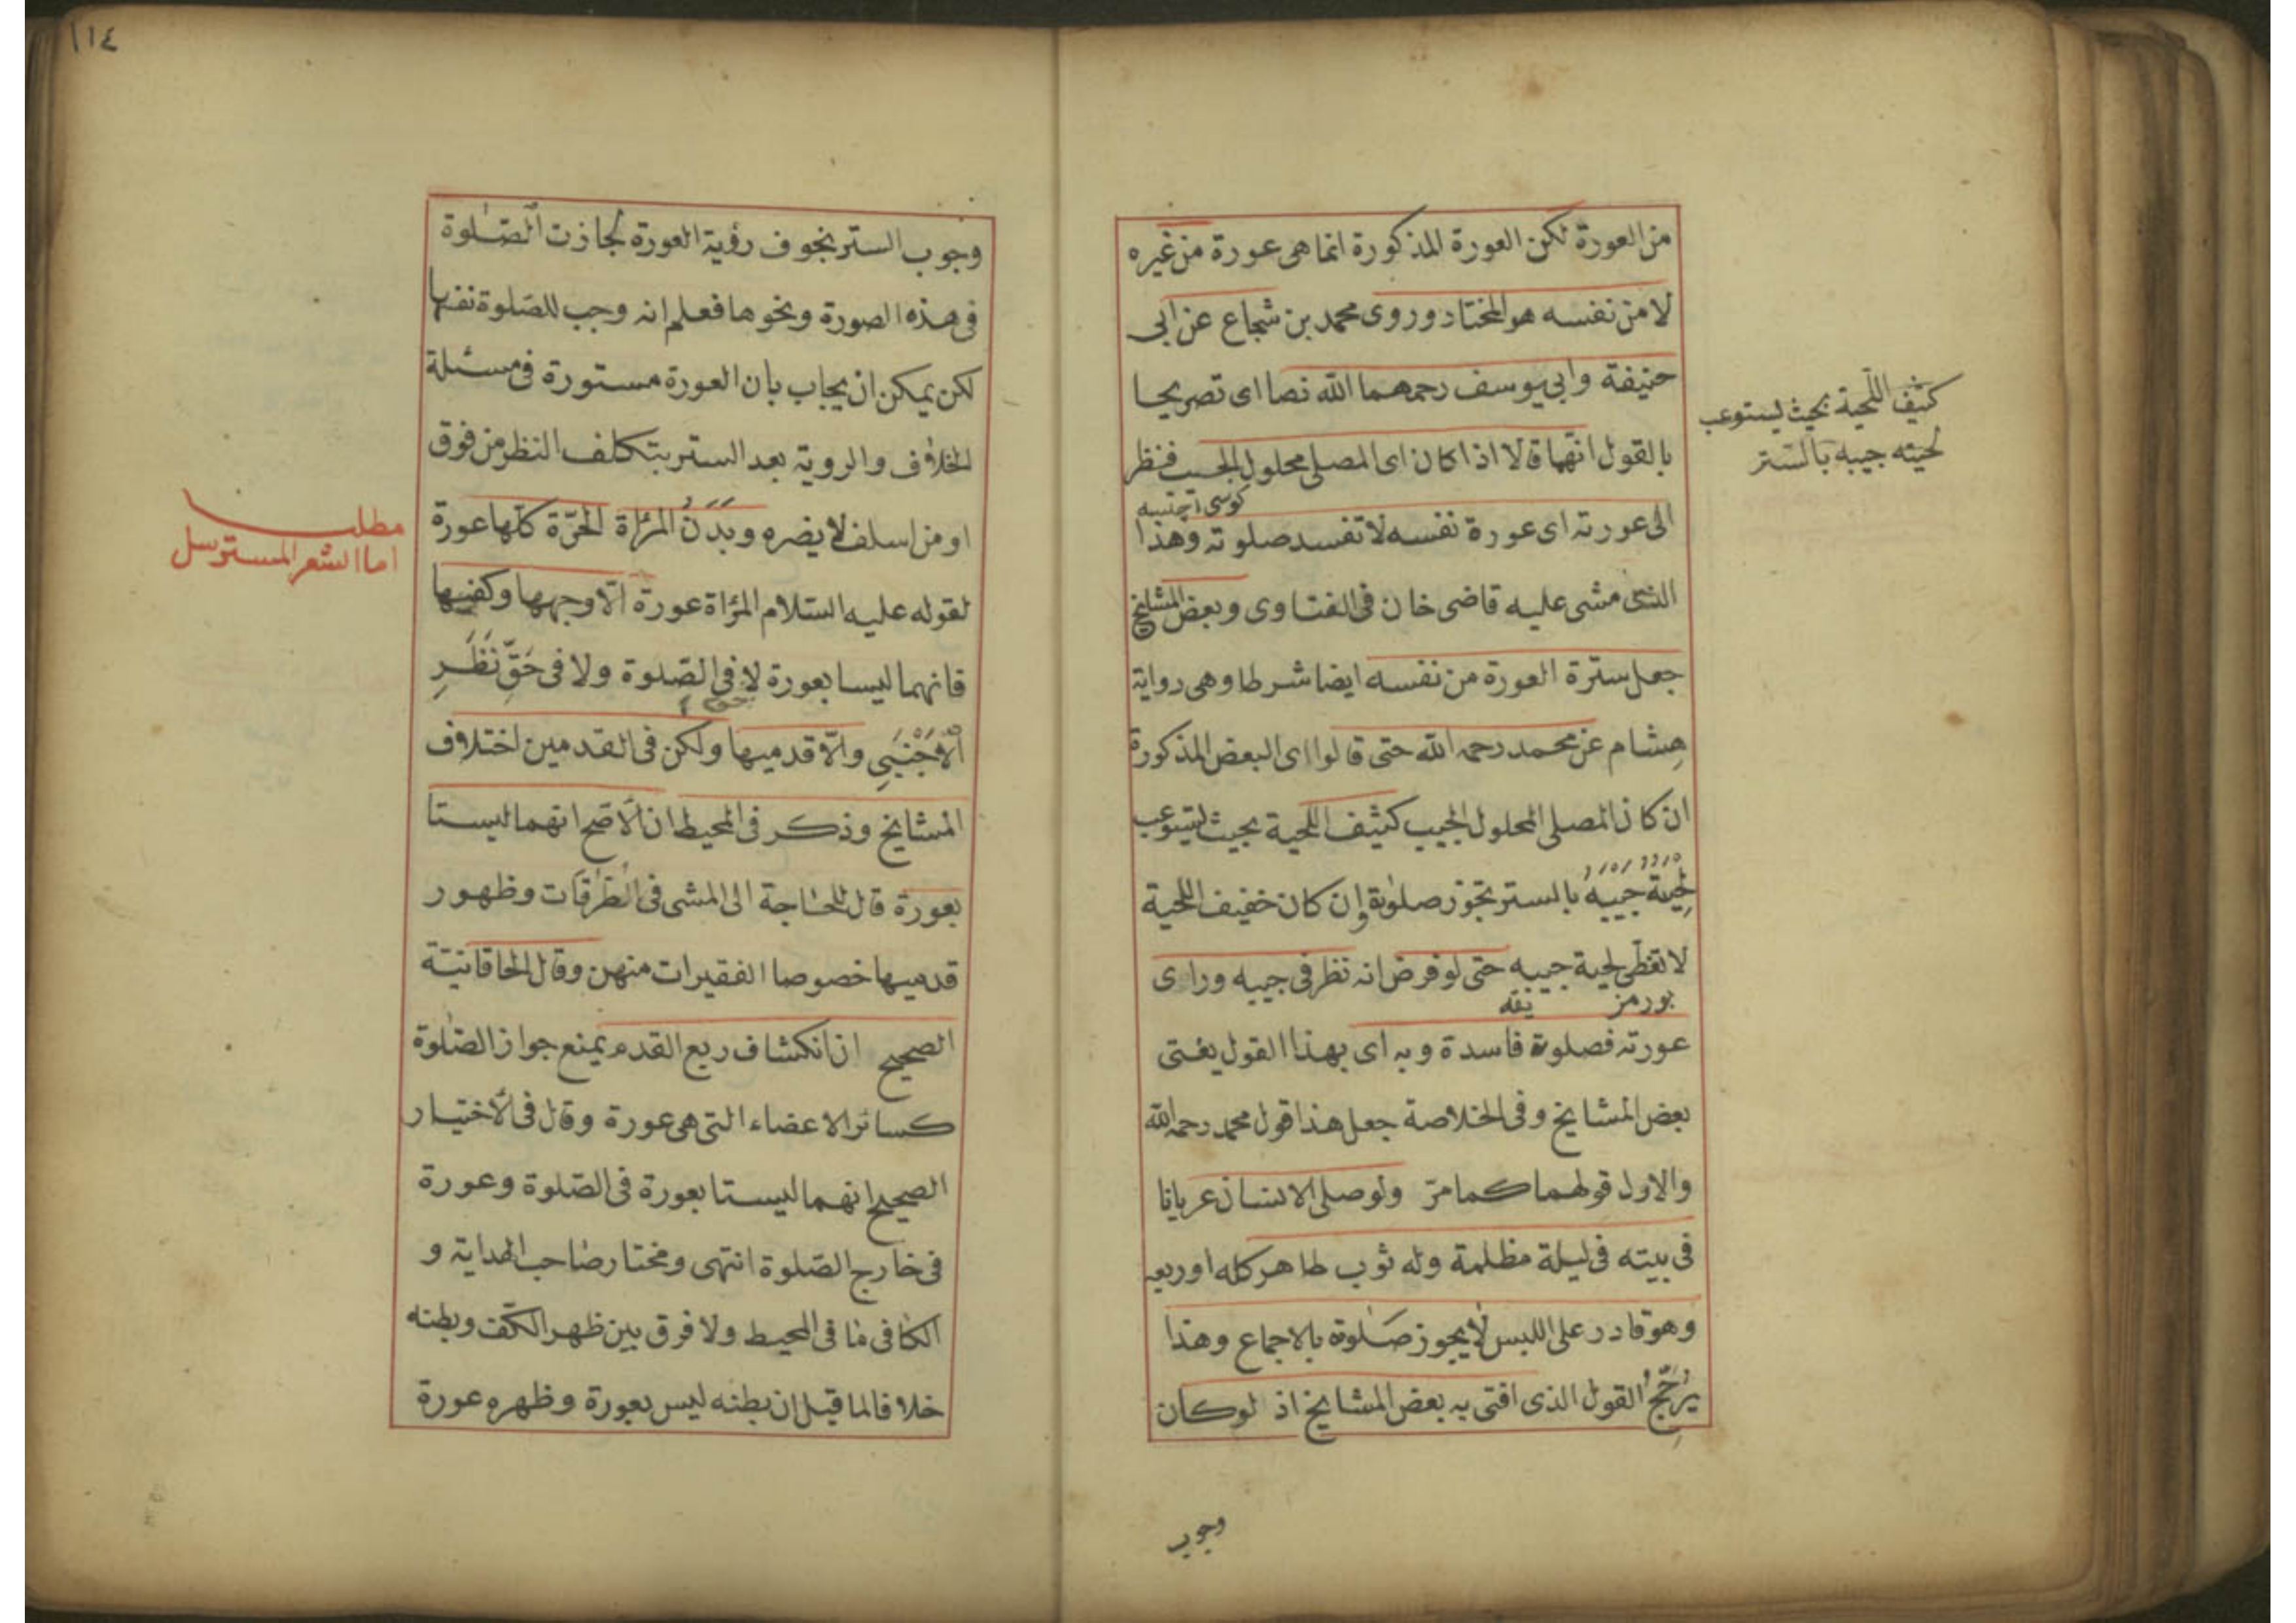 من العورة لكن العورة المذكورة انما هى عورة من غيره
لا من نفسه هو المختار وروى محمد بن شجاع عن ابى
حنيفة وابى يوسف رحمهما الله نصا اى تصريحا
بالقول انهما قالا اذا كان اى المصلى محلول الجيب فنظر
الى عورته اى عورة نفسه لا تفسد صلوته وهذا
الذى مشى عليه قاضى خان فى الفتاوى وبعض المشايخ
جعل سترة العورة من نفسه ايضا شرطا وهى رواية
هشام عن محمد رحمه الله حتى قالوا اى البعض المذكورة
ان كان المصلى المحلول الجيب كثيف اللحية بحيث يستوعب
لحيته جيبه بالستر تجوز صلوته وان كان خفيف اللحية
لا تغطى لحية جيبه حتى لو فرض انه نظر فى جيبه وراى
بورمز يقه
عورته فصلوته فاسدة وبه اى بهذا القول يفتى
بعض المشايخ وفى الخلاصة جعل هذا قول محمد رحمه الله
والاول قولهما كما مرّ ولو صلى الانسان عريانا
فى بيته فى ليلة مظلمة وله ثوب طاهر كله او ربعه
وهو قادر على اللبس لا يجوز صلوته بالاجماع وهذا
يُرَجِّحُ القول الذى افتى به بعض المشايخ اذ لو كان
وجوب
كثيف اللّحية بحيث يستوعب
لحيته جيبه بالستر
١١٤
وجوب الستر بخوف رؤية العورة لجازت الصّلوة
فى هذه الصورة ونحوها فعلم انه وجب للصّلوة نفسها
لكن يمكن ان يجاب بان العورة مستورة فى مسئلة
الخلاف والروية بعد الستر بتكلف النظر من فوق
او من اسلف لا يضره وبَدَنُ المرأة الحرّة كلّها عورة
لقوله عليه السّلام المرأة عورة الّا وجهها وكفيها
فانهما ليسا بعورة لا فى الصّلوة ولا فى حَقّ نَظَرِ
الْاَجْنَبِي والّا قدميها ولكن فى القدمين اختلاف
المشايخ وذكر فى المحيط ان الاصح انهما ليستا
بعورة قال للحاجة الى المشى فى الطرقات وظهور
قدميها خصوصا الفقيرات منهن وقال الخاقانيّة
الصحيح ان انكشاف ربع القدم يمنع جواز الصّلوة
كسائر الاعضاء التى هى عورة وقال فى الاختيار
الصحيح انهما ليستا بعورة فى الصّلوة وعورة
فى خارج الصّلوة انتهى ومختار صاحب الهداية و
الكافى ما فى المحيط ولا فرق بين ظهر الكفّ وبطنه
خلافا لما قيل ان بطنه ليس بعورة وظهره عورة
مطلب
اما الشعر المسترسل